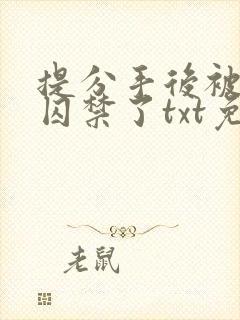 提分手後被
囚禁了txt免
老鼠